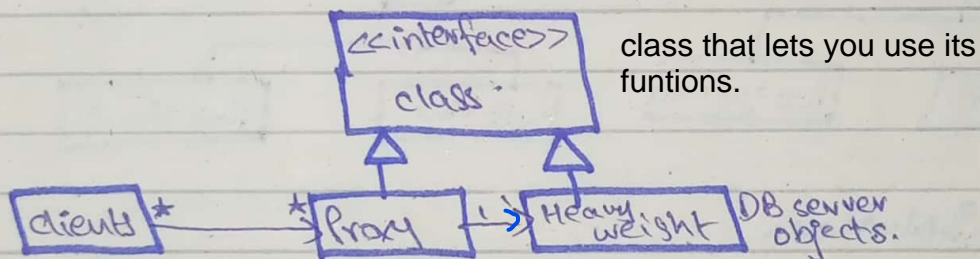 <<interface>>
class
class that lets you use its
funtions.
clients * * Proxy 1 1 Heavy
weight
DB server
objects.